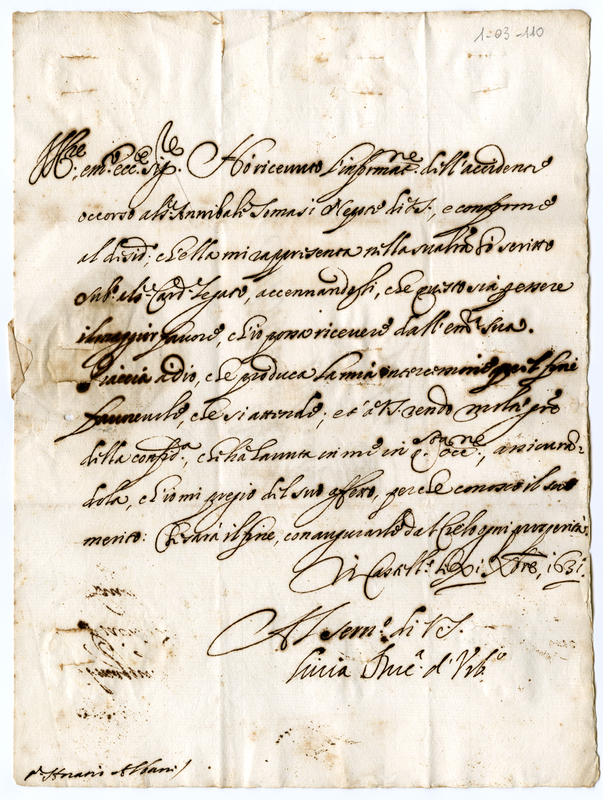 1-03-110
Ill.re et m.to ecc.te Sig.re Hò ricevuto l'informat.ne dell'accidente
occorso al S.r Annibale Tomasi Nepote di V.S., e conforme
al desid.o, ch'ella mi rappresenta nella sua l'hò scritto
sub.o al S.r Card.l Legato, accennandogli, che questo sia p essere
il maggior favore, ch'io possa ricevere dall'em.za sua.
Piaccia à dio, che produca la mia intercessione quel fine
favorevole, che si attende; et à V.S. rendo molte gr.e
della confid.a, che hà havuta in me in q.sta occ.ne, assicuran-
dola, ch'io mi pregio del suo affetto, perche conosco il suo
merito: Che sarà il fine, con augurarle dal Cielo ogni prosperità.
Di Castell.o li Xbre, 1631.
Al serv.o di V.S.
Livia Duc.a d'Urb.o
S.r Horatio Albani